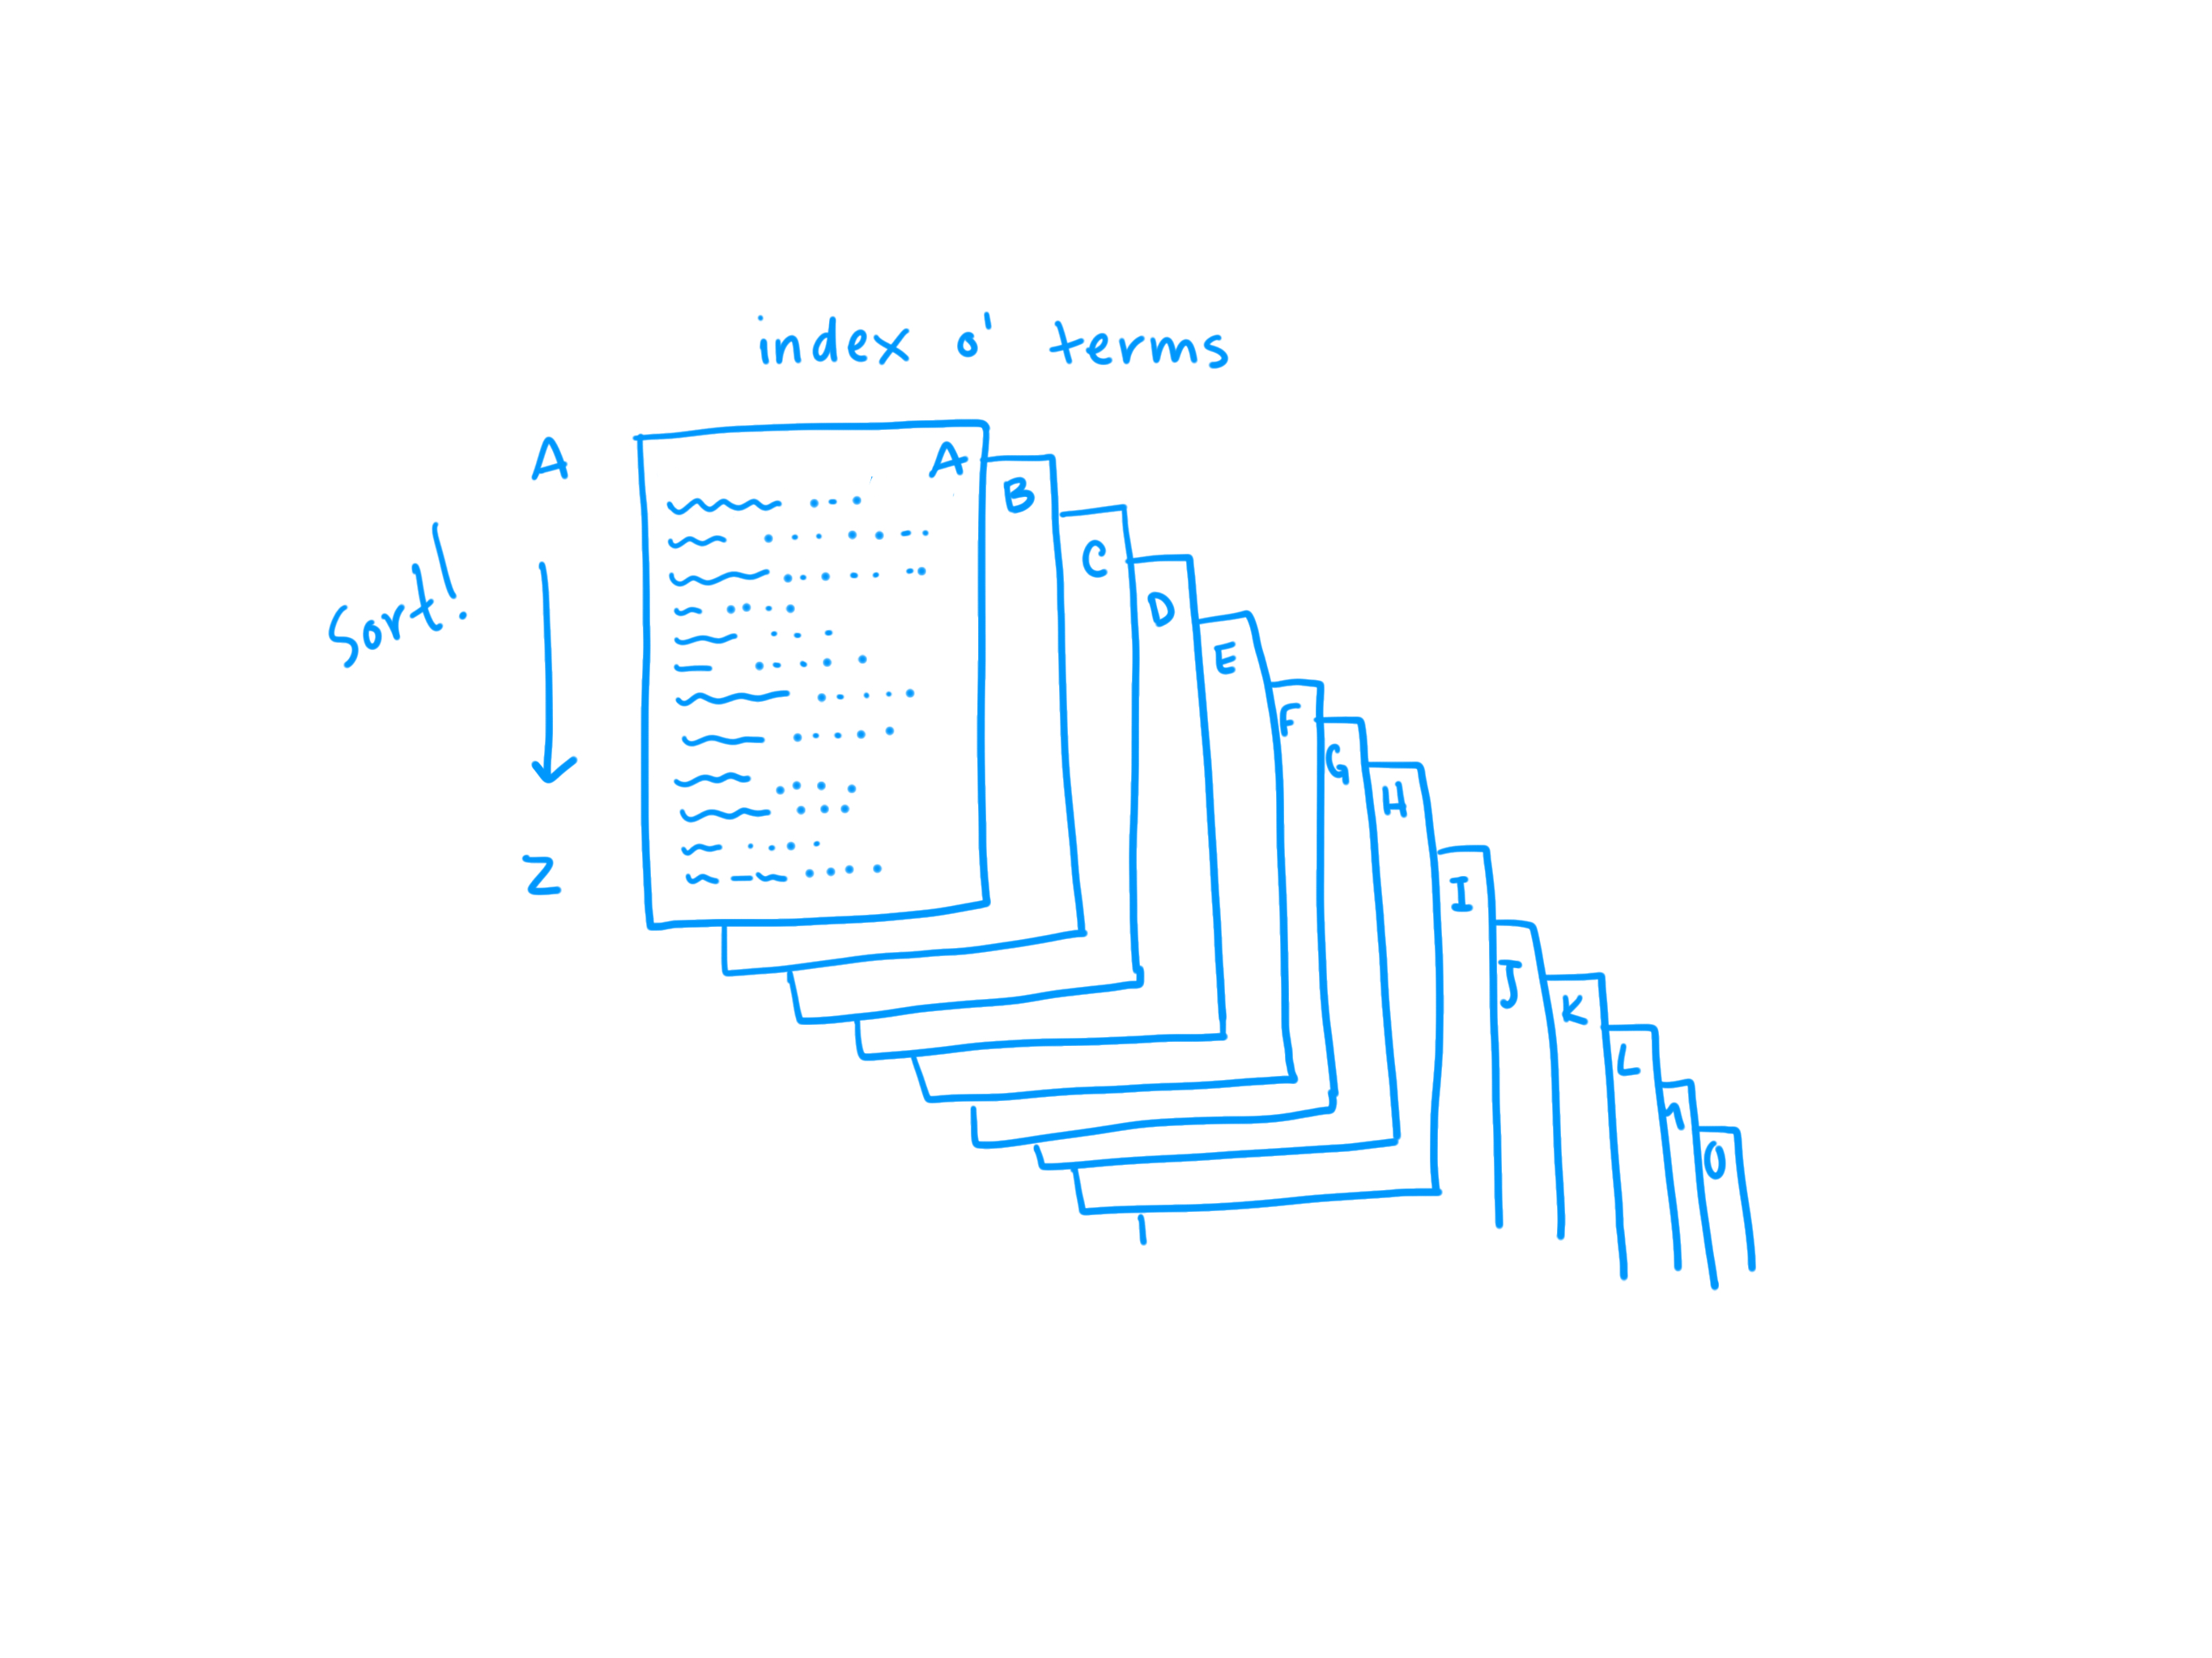 index o' terms
A
Sort!
Z
A
B
C
D
E
F
G
H
I
J
K
L
O